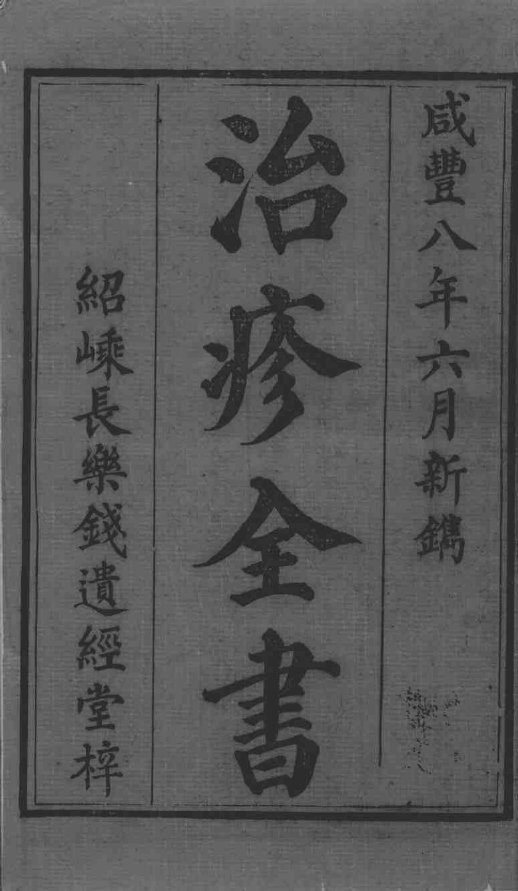 咸豐八年六月新鐫
治疹全書
紹嵊長樂錢遺經堂梓